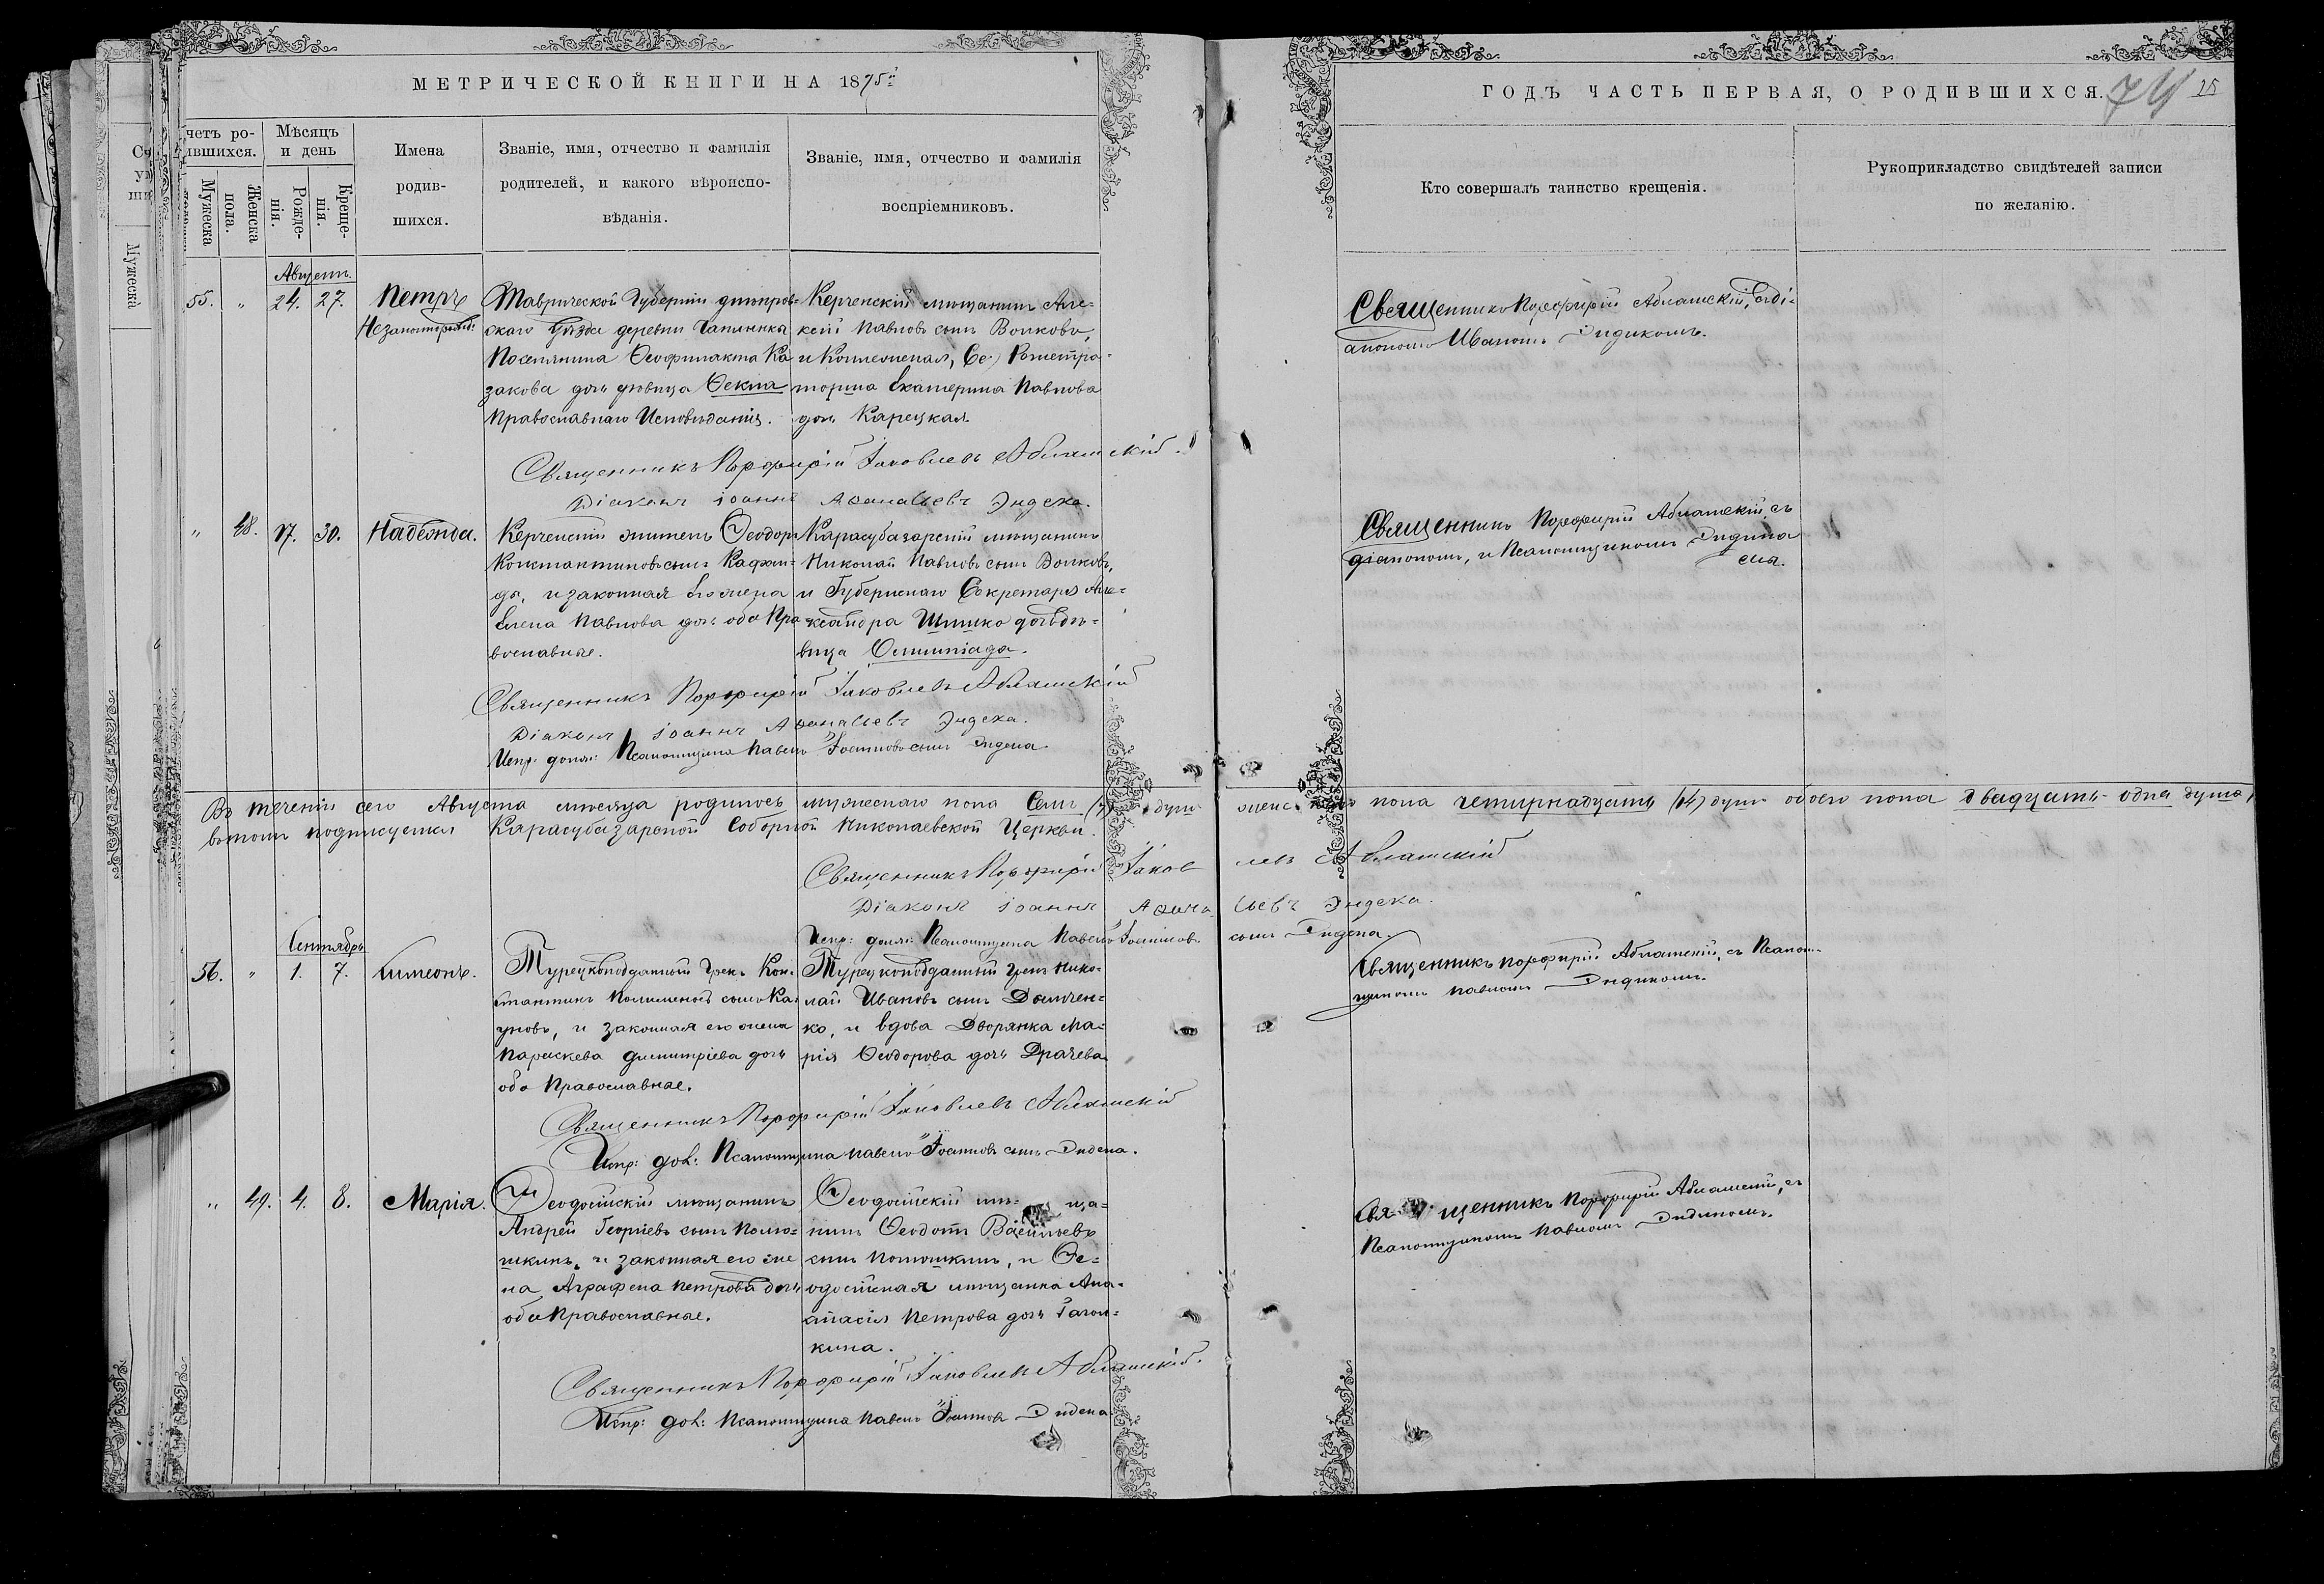 МЕТРИЧЕСКОЙ КНИГИ НА 1875й
ГОДЪ ЧАСТЬ ПЕРВАЯ, О РОДИВШИХСЯ.
74
25
четъ ро-
ившихся.
Мужеска
Женска
пола.
Мѣсяцъ
и день
Рожде-
нія.
Креще-
нія.
Имена
родив-
шихся.
Званіе, имя, отчество и фамилія
родителей, и какого вѣроиспо-
вѣданія.
Званіе, имя, отчество и фамилія
воспріемниковъ.
Кто совершалъ таинство крещенія.
Рукоприкладство свидѣтелей записи
по желанію.
Мужеска
Августъ.
55. " 24. 27.
Петръ
Таврической Губерніи днѣпров=
скаго Уѣзда деревни
Поселянина Ѳеофилакта Ка
закова дочь дѣвица Ѳекла
Православнаго Исповѣданія.
Керченскій мѣщанинъ Але=
ксѣй Павловъ сынъ Волковъ,
и
Екатерина Павлова
дочь Карецкая.
Священникъ Порфирій Аблашскій, съ ді=
акономъ Иваномъ Дидикомъ.
Священникъ Порфирій Іаковлевъ Аблашскій.
Діаконъ Іоаннъ Аѳанасьевъ Дидека.
" 48. 17. 30.
Надежда.
Керченскій житель Ѳеодоръ
Константиновъ сынъ
и законная его жена
Елена Павлова дочь оба Пра
вославные.
Карасубазарскій мѣщанинъ
Николай Павловъ сынъ Волковъ,
и Губернскаго Секретаря Але=
ксандра Шишко дочь дѣ=
вица Олимпіада.
Священникъ Порфирій Аблашскій, съ
діакономъ, и Псаломщикомъ Дидика
ми.
Священникъ Порфирій Іаковлевъ Аблашскій
Діаконъ Іоаннъ Аѳанасьевъ Дидека.
Испр: долж: Псаломщика Павелъ Іоанновъ сынъ Дидека
Въ теченіи сего Августа мѣсяца родилось мужескаго пола Семь (7) душъ женскаго пола четырнадцать (14) душъ обоего пола двадцать одна душа,
въ томъ подписуемся Карасубазарской Соборной Николаевской Церкви.
Священникъ Порфирій Іаковлевъ Аблашскій
Діаконъ Іоаннъ Аѳанасьевъ Дидека.
Испр: долж: Псаломщика Павелъ Іоанновъ сынъ Дидека.
Сентябрь
56. " 1. 7.
Симеонъ.
Турецкоподданный Грекъ Кон=
стантинъ
и законная его жена
Параскева Димитріева дочь
оба Православные.
Турецкоподданный грекъ Нико=
лай Ивановъ сынъ
ко, и вдова Дворянка Ма=
рія Ѳеодорова дочь Драчева.
Священникъ Порфирій Аблашскій, съ Псалом=
щикомъ Павломъ Дидикомъ.
Священникъ Порфирій Іаковлевъ Аблашскій
Испр: дол: Псаломщика Павелъ Іоанновъ сынъ Дидека.
" 49. 4. 8.
Марія.
Ѳеодосійскій мѣщанинъ
Андрей Георгіевъ сынъ
и законная его же
на Аграфена Петрова дочь
оба Православные.
Ѳеодосійскій мѣ= ща=
нинъ Ѳеодотъ Васильевъ
сынъ и Ѳе=
одосійская мѣщанка Ана=
стасія Петрова дочь
кина.
Священникъ Порфирій Аблашскій, съ
Псаломщикомъ Павломъ Дидикомъ.
Священникъ Порфирій Іаковлевъ Аблашскій.
Испр: дол: Псаломщика Павелъ Іоанновъ Дидека